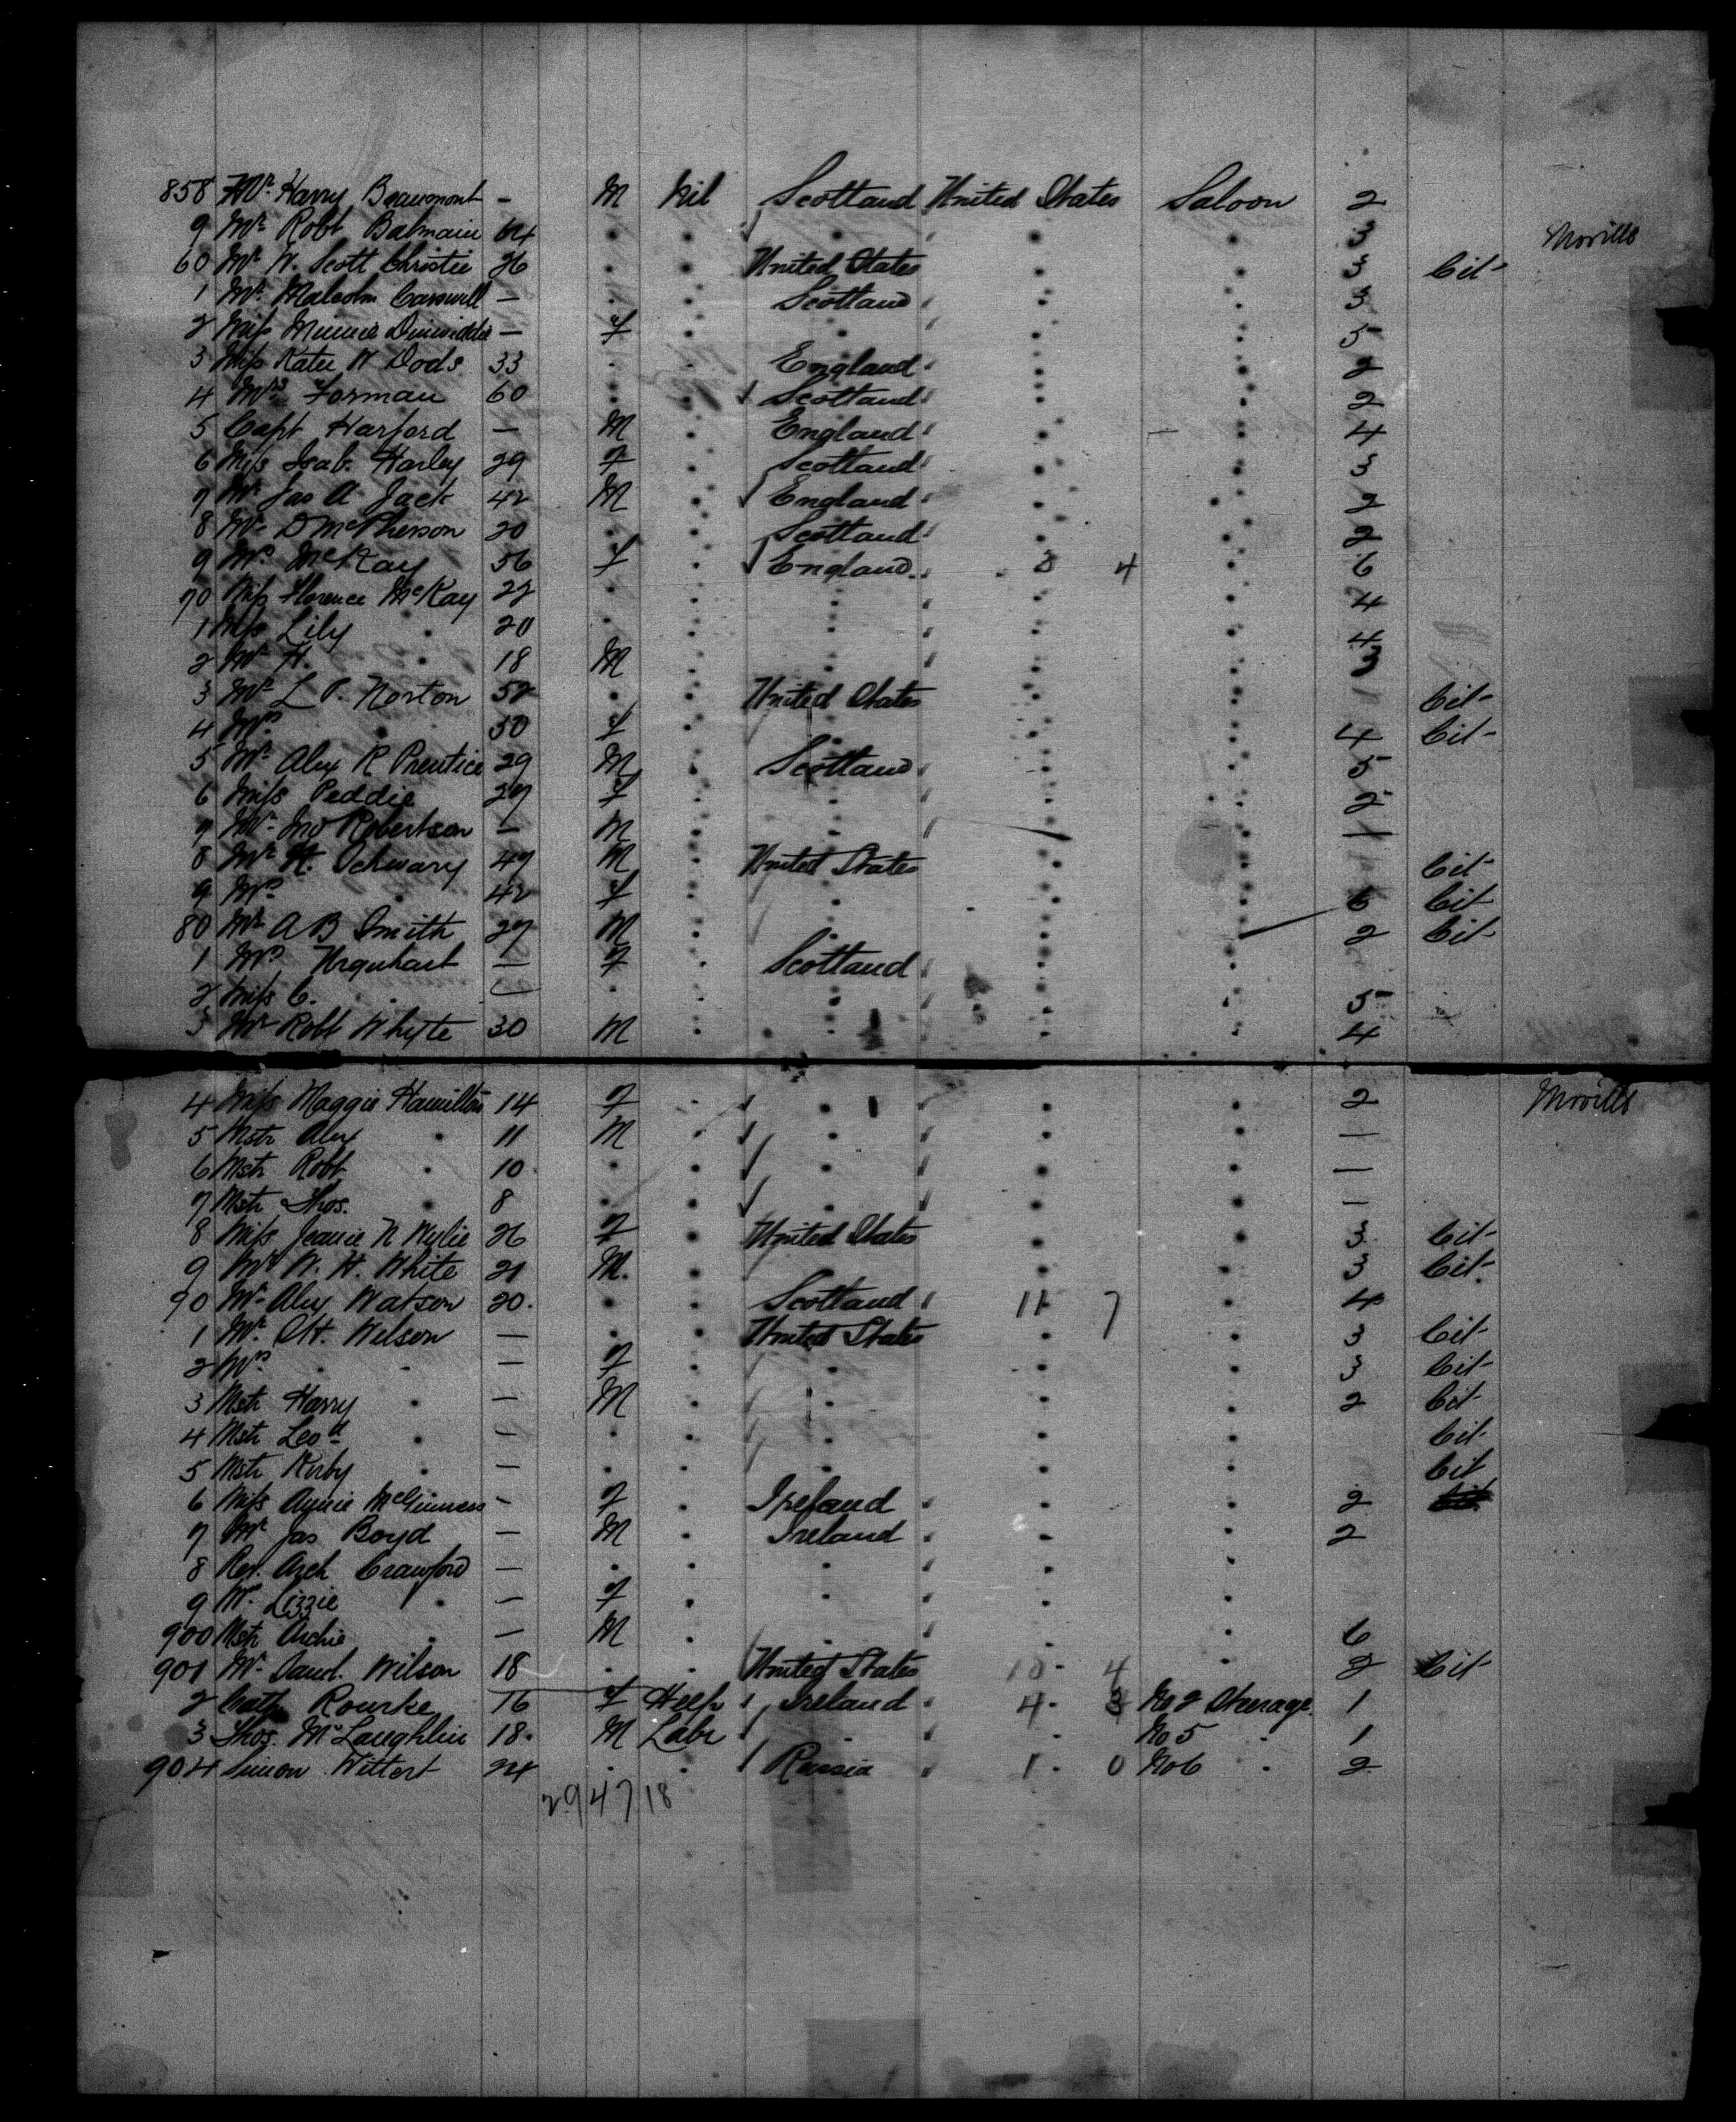 858 Mr. Harry Beaumont - M Nil Scotland United States Saloon 2
9 Mr Robt Balmain 64 3 Moville
60 Mr W. Scott Christie 26 United States 3 Cit-
1 Mr. Malcolm - Scotland 3
2 Miss Minnie Dinwiddie - f 5
3 Miss Katie W Dods 33 England 2
4 Mrs Forman 60 Scotland 2
5 Capt Harford - M England 4
6 Miss Isab. Harley 29 f Scotland 3
7 Mr Jas A Jack 42 M England 2
8 Mr D McPherson 20 Scotland 2
9 Mrs McKay 56 f England 3 4 6
70 Miss Florence McKay 22 4
1 Miss Lily 20 4
2 Mr H. 18 M 3
3 Mr L P. Norton 52 United States Cit-
4 Mrs 50 f 4 Cit-
5 Mr Alex R Prentice 29 M Scotland 5
6 Miss Peddie 27 f 2
7 Mr Jno Robertson - M 1
8 Mr H. Schwarz 47 M United States Cit-
9 Mrs 42 f 6 Cit
80 Mr A B Smith 27 M 2 Cit-
1 Mrs Urquhart - f Scotland
2 Miss C. - 5
3 Mr Robt Whyte 30 M 4
4 Miss Maggie Hamilton 14 f 2 Moville
5 Mstr Alex 11 M -
6 Mstr Robt 10 -
7 Mstr Thos. 8 -
8 Miss Jeanie N Wylie 26 f United States 3 Cit-
9 Mr W. H. White 21 M. 3 Cit-
90 Mr Alex Watson 20. Scotland 11 7 4
1 Mr. Wilson - United States 3 Cit-
2 Mrs - f 3 Cit-
3 Mstr Harry - M 2 Cit-
4 Mstr Leod - Cit-
5 Mstr Kirby - Cit
6 Miss Annie McGinness - f Ireland 2
7 Mr Jas Boyd - M Ireland 2
8 Rev. Arch Crawford -
9 Lizzie - f
900 Mstr Archie - M 6
901 Mr Saml. Wilson 18 United States 10 4 2 Cit-
2 Cath Rourke 16 f Help Ireland 4 3 No 2 Steerage 1
3 Thos. McLaughlin 18. M Labr No 5 1
904 Simon Wittert 24 Russia 1 0 No 6 2
294718